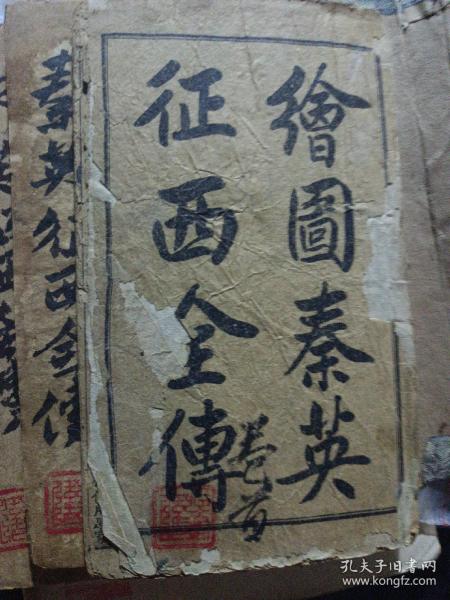 繪圖秦英
征西全傳
卷首
秦英征西全傳
孔夫子旧书网
www.kongfz.com